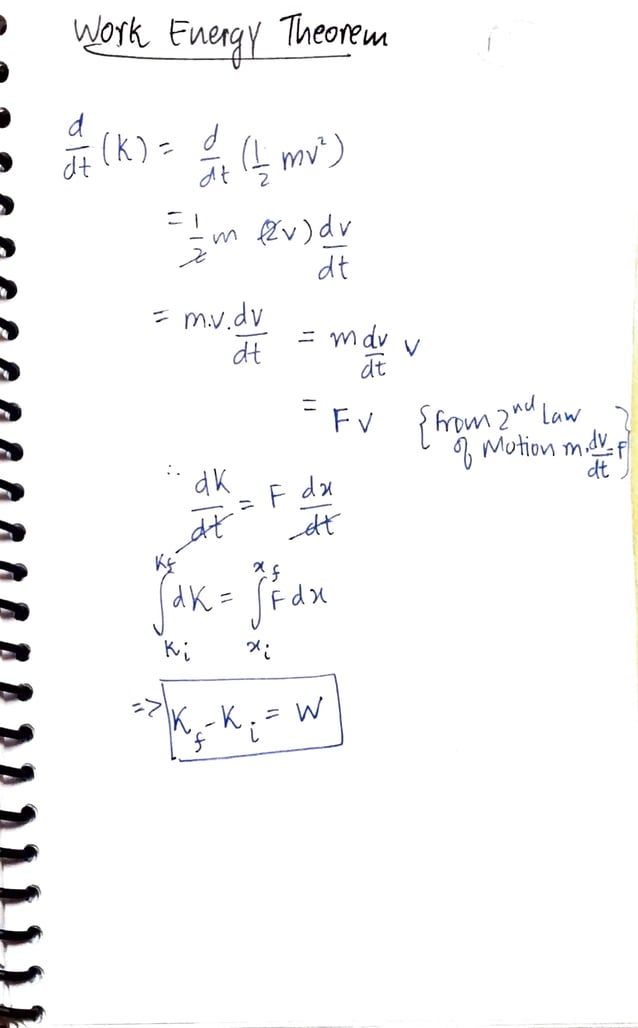 Work Energy Theorem
d/dt (K) = d/dt (1/2 mv²)
= 1/2 m (2v) dv/dt
= m.v. dv/dt = m dv/dt v
= Fv {from 2nd Law
of Motion m. dv/dt = F}
∴ dK/dt = F dx/dt
∫_{Ki}^{Kf} dK = ∫_{xi}^{xf} F dx
=> K_f - K_i = W